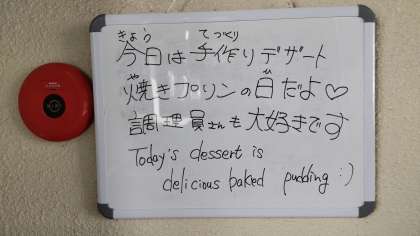 きょう てづくり
今日は手作りデザート
や ひ
焼きプリンの日だよ♡
調理員さんも大好きです
Today's dessert is
delicious baked pudding :)